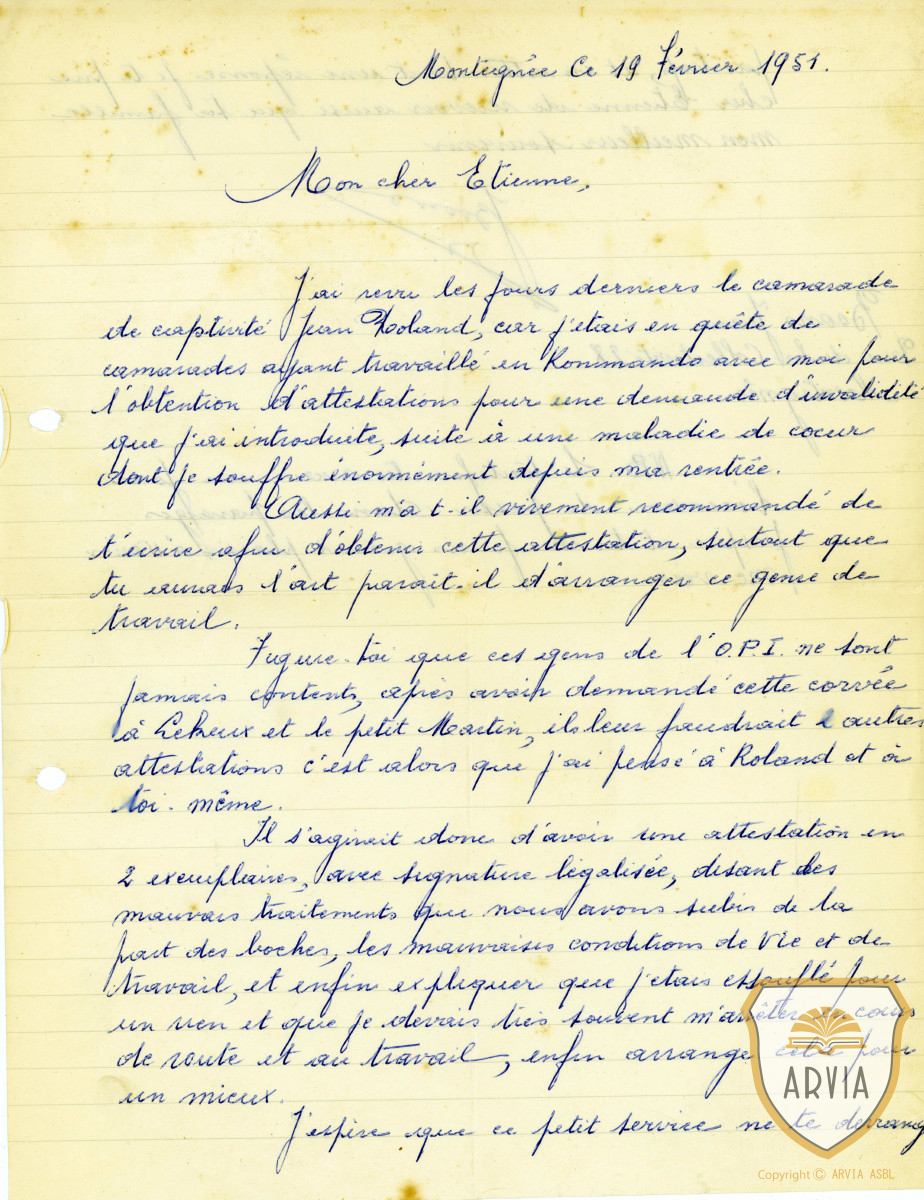 Montegnée Ce 19 Février 1951.
Mon cher Etienne,
J'ai revu les jours derniers le camarade
de capturté Jean Roland, car j'étais en quête de
camarades ayant travaillé en Kommando avec moi pour
l'obtention d'attestations pour une demande d'invalidité
que j'ai introduite, suite à une maladie de coeur
dont je souffre énormément depuis ma rentrée.
Aussi m'a t-il vivement recommandé de
t'écrire afin d'obtenir cette attestation, surtout que
tu aurais l'art parait-il d'arranger ce genre de
travail.
Figure-toi que ces gens de l'O.P.I. ne sont
jamais contents, après avoir demandé cette corvée
à Lekeux et le petit Martin, ils leur faudrait 2 autres
attestations c'est alors que j'ai pensé à Roland et à
toi-même.
Il s'agirait donc d'avoir une attestation en
2 exemplaires, avec signature légalisée, disant des
mauvais traitements que nous avons subis de la
part des boches, les mauvaises conditions de Vie et de
travail, et enfin expliquer que j'étais essouflé pour
un rien et que je devais très souvent m'arrêter en cours
de route et au travail, enfin arrange cela pour
un mieux.
J'espère que ce petit service ne te derrang
ARVIA
Copyright © ARVIA ASBL